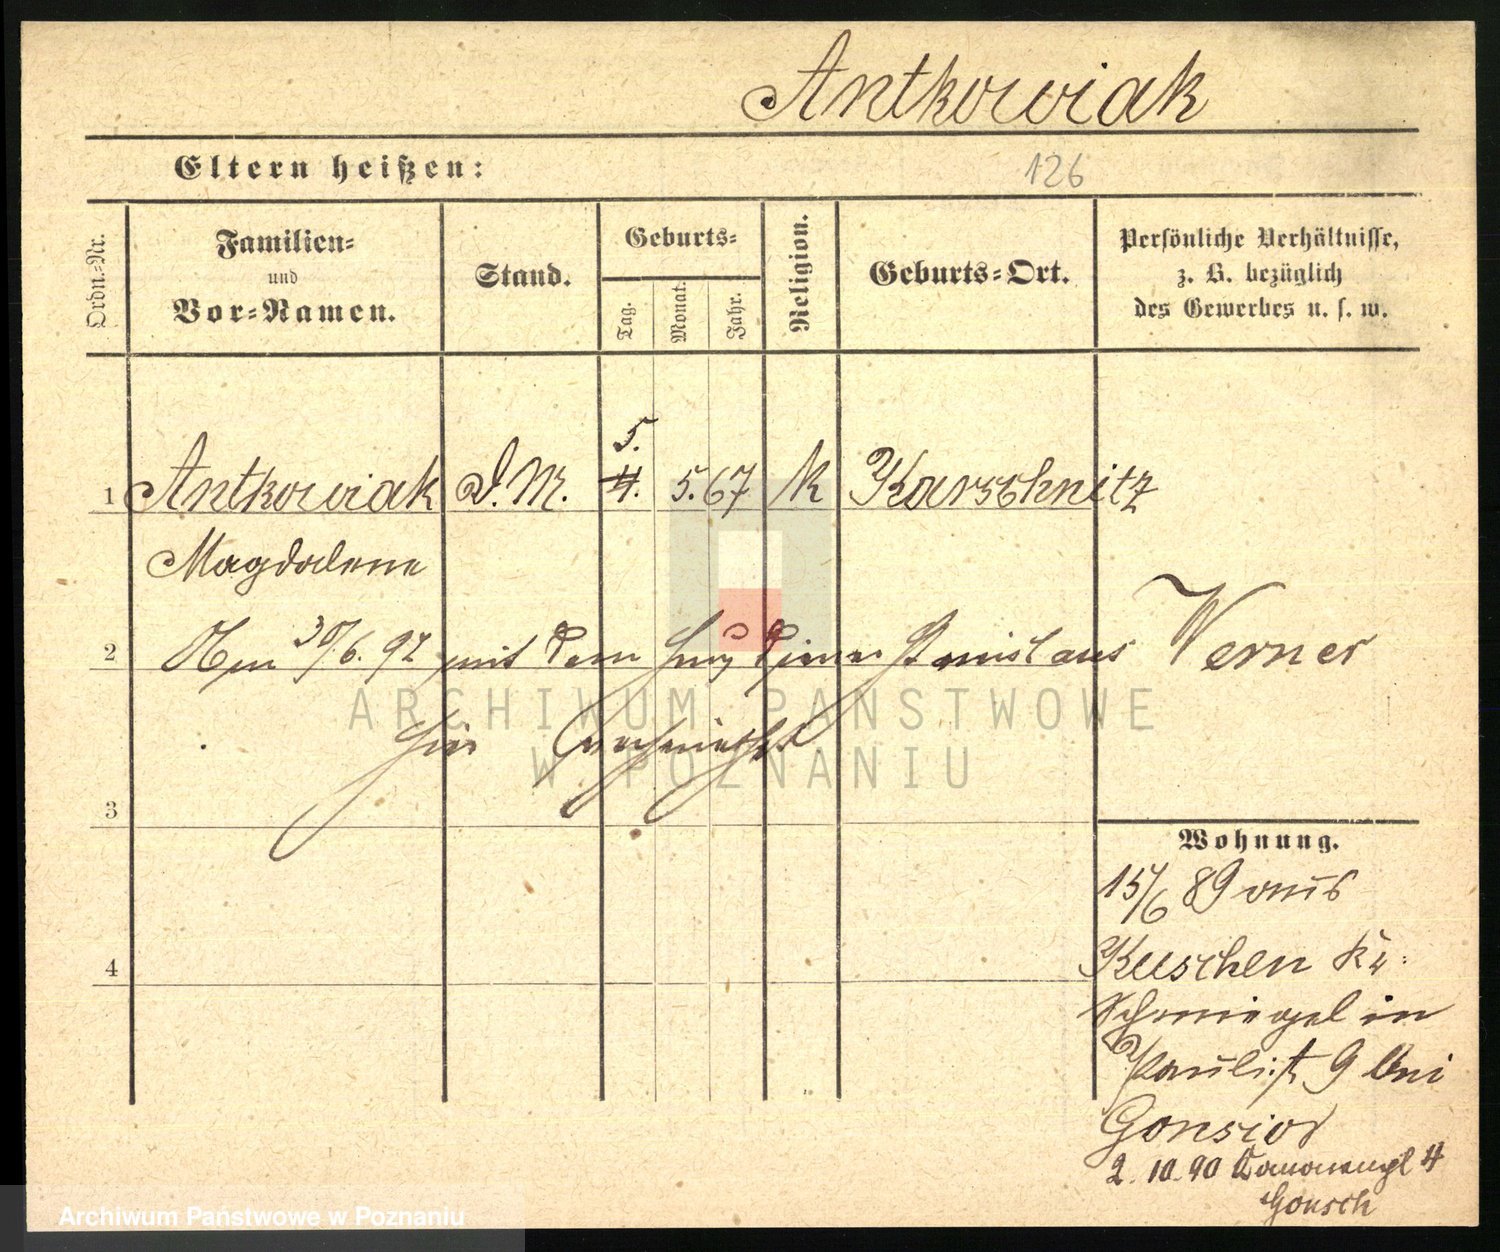 Antkowiak
Eltern heißen:
126
Ordn.-Nr.
Familien-
und
Vor-Namen.
Stand.
Geburts-
Tag.
Monat.
Jahr.
Religion.
Geburts-Ort.
Persönliche Verhältnisse,
z. B. bezüglich
des Gewerbes u. s. w.
5.
1 Antkowiak D.M. 4. 5. 67 k Karschnitz
Magdalena
2 Am 30/6. 92 mit dem Stanislaus Werner
hier
ARCHIWUM PAŃSTWOWE
W POZNANIU
3
Wohnung.
15/6 89 aus
4
Kuschen Kr.
Schmiegel in
Paulist. 9 bei
Gonsior
2. 10. 90 Kanonenpl 4
Gonsch
Archiwum Państwowe w Poznaniu